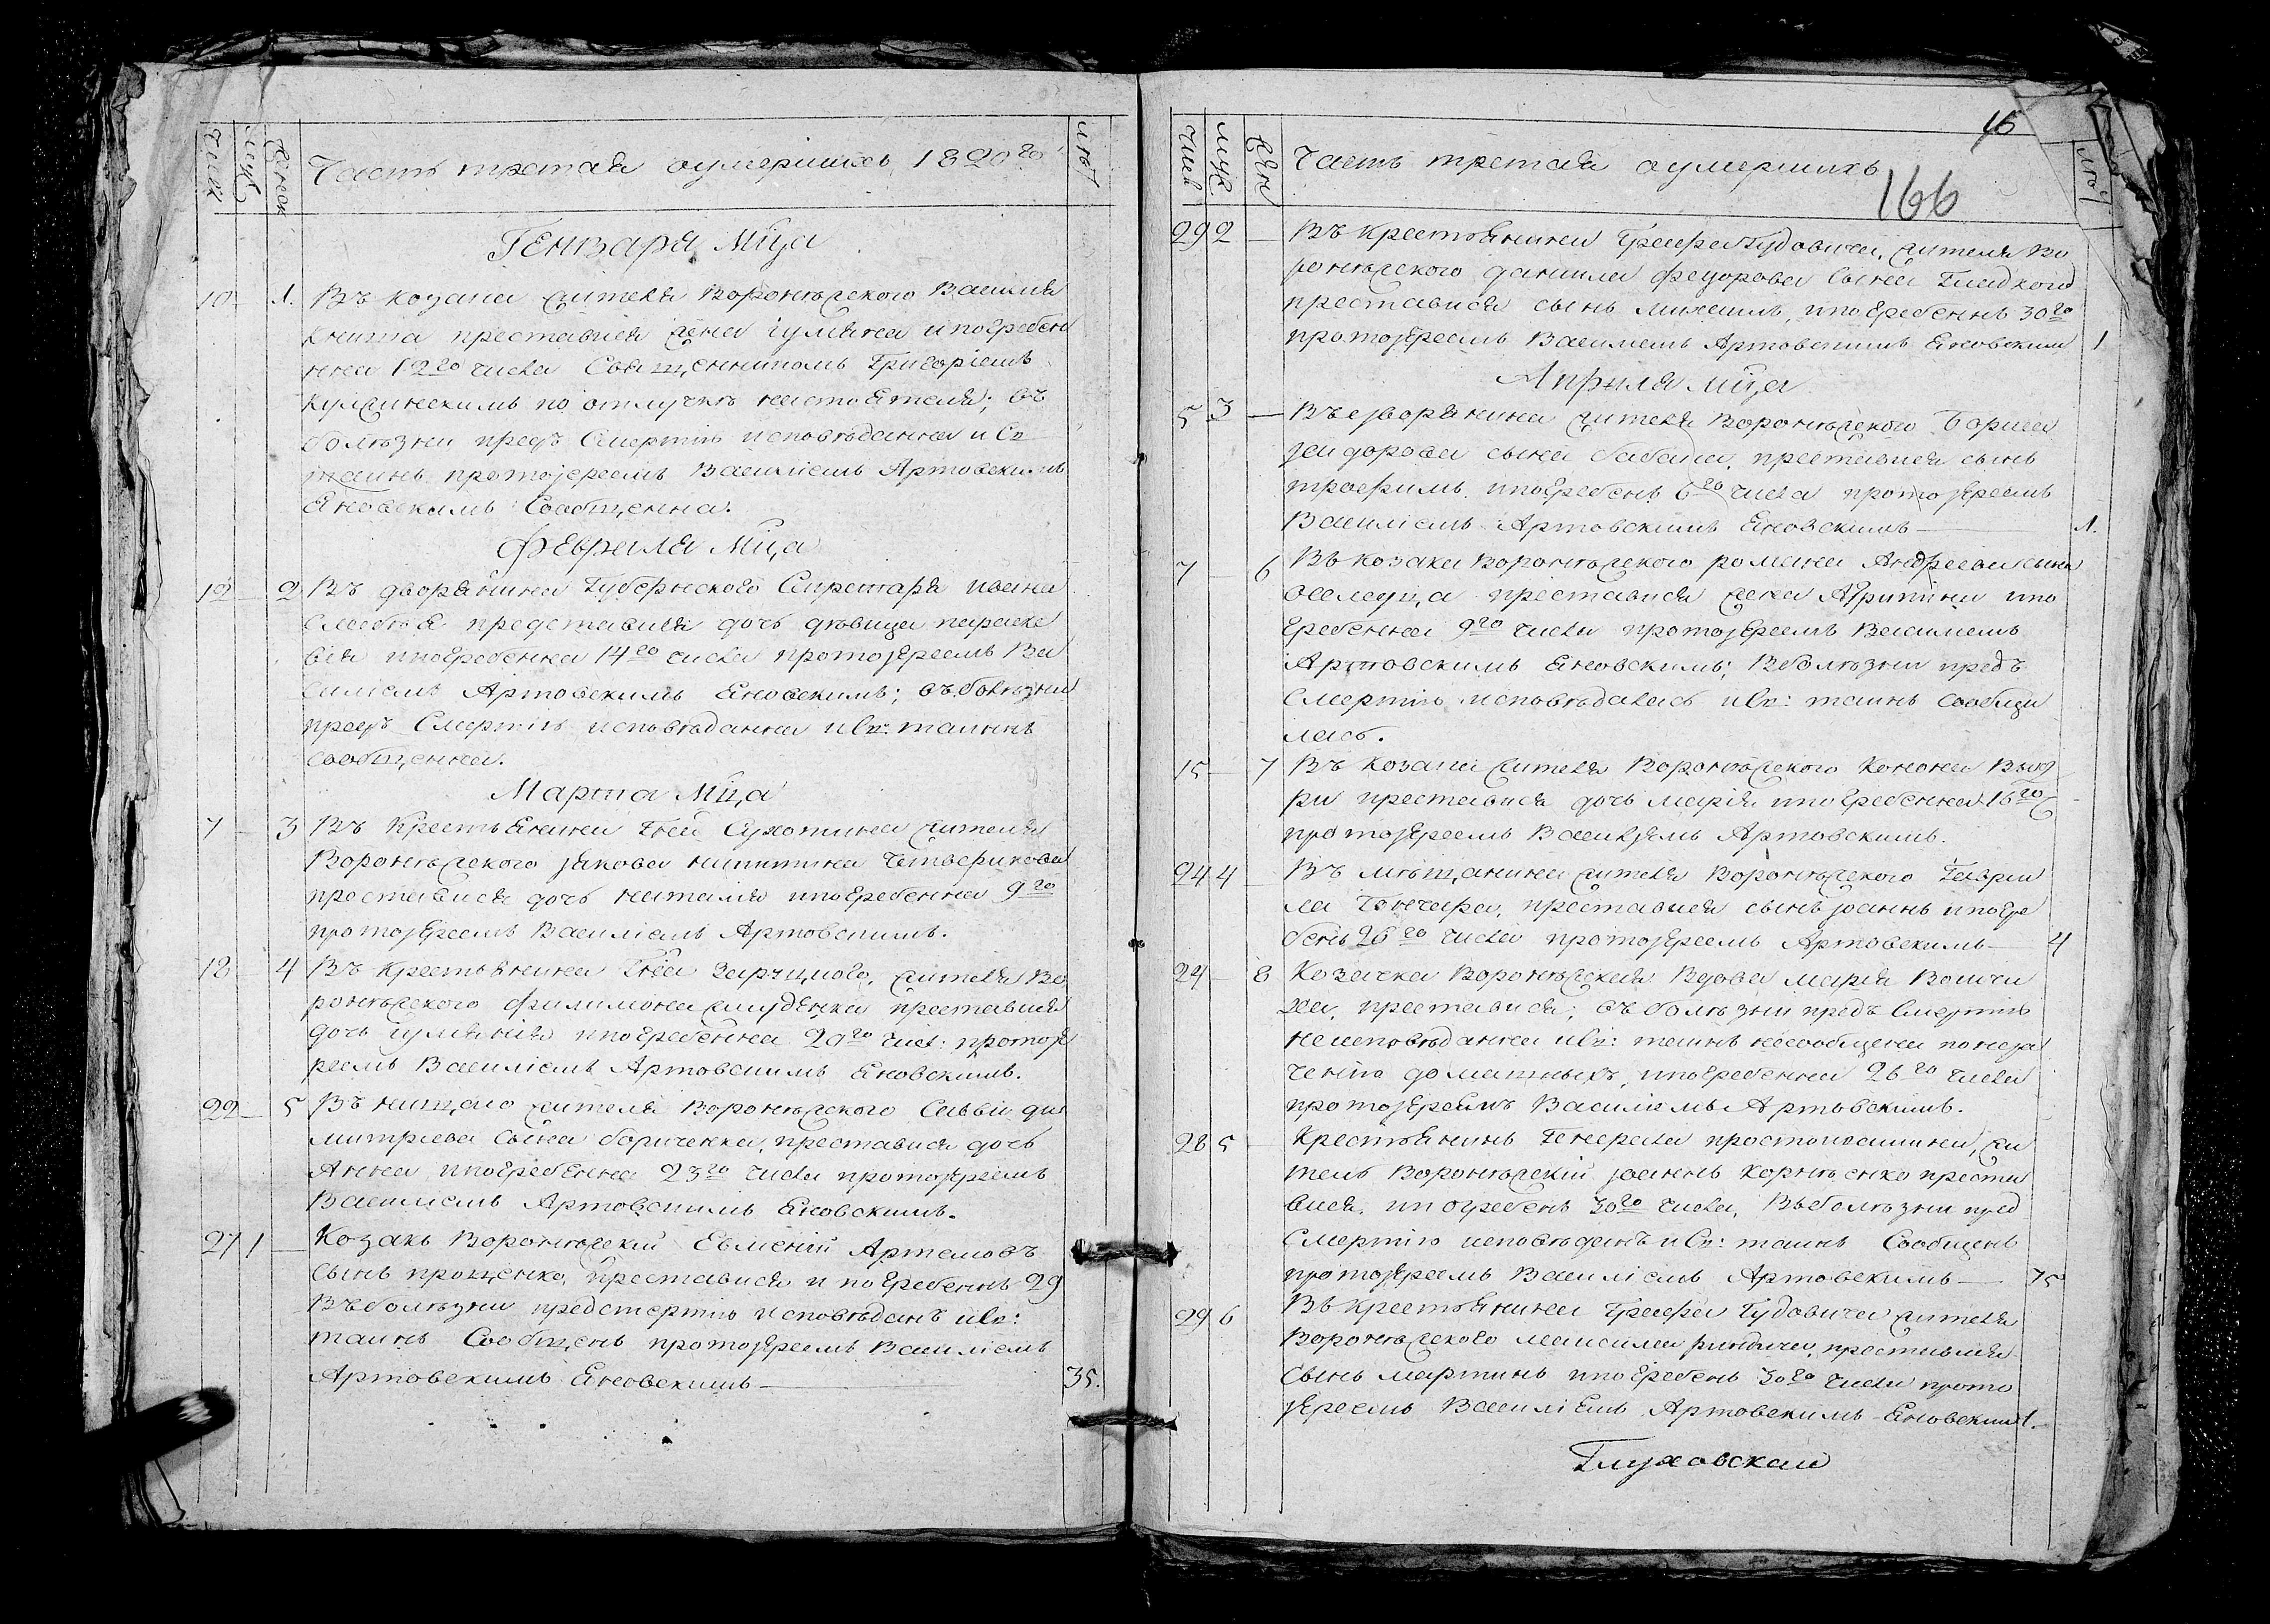 Числ
Муж
Женск
Часть третая о умершихъ 1820го
лѣт
Генваря мⷭ҇ца
10 — 1. Въ козака жителя Воронѣжского Василия
Книша преставися жена Іулияна и погребен
нна 12го числа Священникомъ Григоріемъ
по отлучкѣ настоятеля; въ
болѣзни предъ Смертію исповѣданна и Св
таинъ протоіереемъ Василіемъ Артовскимъ
Яновскимъ Сообщенна.
Февраля Мца
12 — 2 Въ дворянина Губернского Секретаря ивана
преставися дочь дѣвица параске
вия и погребенна 14го числа протоіереемъ Ва
силіемъ Артовскимъ Яновскимъ; въ болѣзни
предъ Смертію исповѣданна и Св: таиннъ
сообщенна.
Марта Мца
7 — 3 Въ Крестьянина Гжи Сухотина жителя
Воронѣжского Якова никитина Четверикова
преставися дочь наталия и погребенна 9го
протоіереемъ Василіемъ Артовскимъ.
18 — 4 Въ Крестьянина жителя Во
ронѣжского филимона преставися
дочь Іулиянія и погребенна 20го числ: протоіе
реемъ Василіемъ Артовскимъ Яновскимъ.
22 — 5 Въ нищаго жителя Воронѣжского Саввы ди
митриева Сына бориченка, преставися дочь
Анна и погребенна 23го числа протоіереемъ
Василіемъ Артовскимъ Яновскимъ.
27 1 — Козакъ Воронѣжский Евмений Артемовъ
Сынъ проценко, преставися и погребеннъ 29
Въ болѣзни предсмертію исповѣданъ и Св:
таинъ Сообщенъ протоіереемъ Василіемъ
Артовскимъ Яновскимъ — 35.
16
Числ
Муж
Жен
Часть третая о умершихъ
лѣт
166
29 2 — Въ крестьянина Графа Гудовича, жителя Во
ронѣжского данила федорова Сына Гладкого
преставися сынъ михаилъ, и погребеннъ 30го
протоіереемъ Василиемъ Артовскимъ Яновским 1
Априля мца
5 3 — Въ дворянина жителя Воронѣжского Бориса
сына бабича, преставися сынъ
трофимъ и погребенъ 6го числа протоіереемъ
Василіемъ Артовскимъ Яновскимъ — 1.
7 — 6 Въ козака Воронѣжского романа Андреева сына
оселедца преставися жена Агрипина и по
гребенна 9го числа протоіереемъ Василиемъ
Артовскимъ Яновскимъ; Въ болѣзни предъ
Смертію исповѣдалась и Св: таинъ сообщи
лась.
15 — 7 Въ Козака жителя Воронѣжского Конона
ри преставися дочь мария и погребенна 16го
протоіереемъ Василіемъ Артовскимъ.
24 4 — Въ мѣщанина жителя Воронѣжского Гаври
ла Гончара, преставися сынъ іоаннъ и погре
бенъ 26го числа протоіереемъ Артовскимъ — 4
24 — 8 Козачка Воронѣжская Вдова мария
ха, преставися; въ болѣзни предъ Смертію
не исповѣданна и Св: таинъ несообщена по нера
чению домашныхъ, и погребенна 26го числа
протоіереемъ Василиемъ Артовскимъ.
28 5 — Крестьянинъ Генерала жи
тель Воронѣжский іоаннъ Корнѣенко преста
вися, и погребенъ 30го числа, Въ болѣзни пред
Смертію исповѣданъ и Св: таинъ Сообщенъ
протоіереемъ Василіемъ Артовскимъ — 75
29 6 Въ Крестьянина Графа Гудовича жителя
Воронѣжского максима преставися
Сынъ мартинъ и погребенъ 30го числа прото
іереемъ Василіемъ Артовскимъ Яновским 1.
Глуховскаи